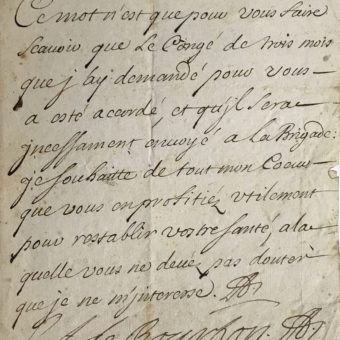 Ce mot n'est que pour vous faire
scavoir que le Congé de trois mois
que j'ay demandé pour vous
a esté accordé, et qu'il sera
incessament envoyé a la Brigade:
je souhaitte de tout mon Coeur
que vous en profitiez vtilement
pour restablir vostre santé, a la
quelle vous ne devez pas douter
que je ne m'interesse.